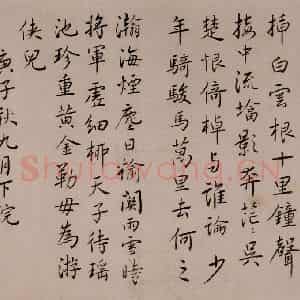 插白雲根十里鐘聲
中流塔影奔茫〻吳
楚恨倚棹与誰論少
年騎駿馬萬里去何之
瀚海煙塵日榆關雨雪時
將軍虛細柳天子待瑤
池珍重黃金勒毋為游
俠兒
庚子秋九月下浣
Shufawang.CN